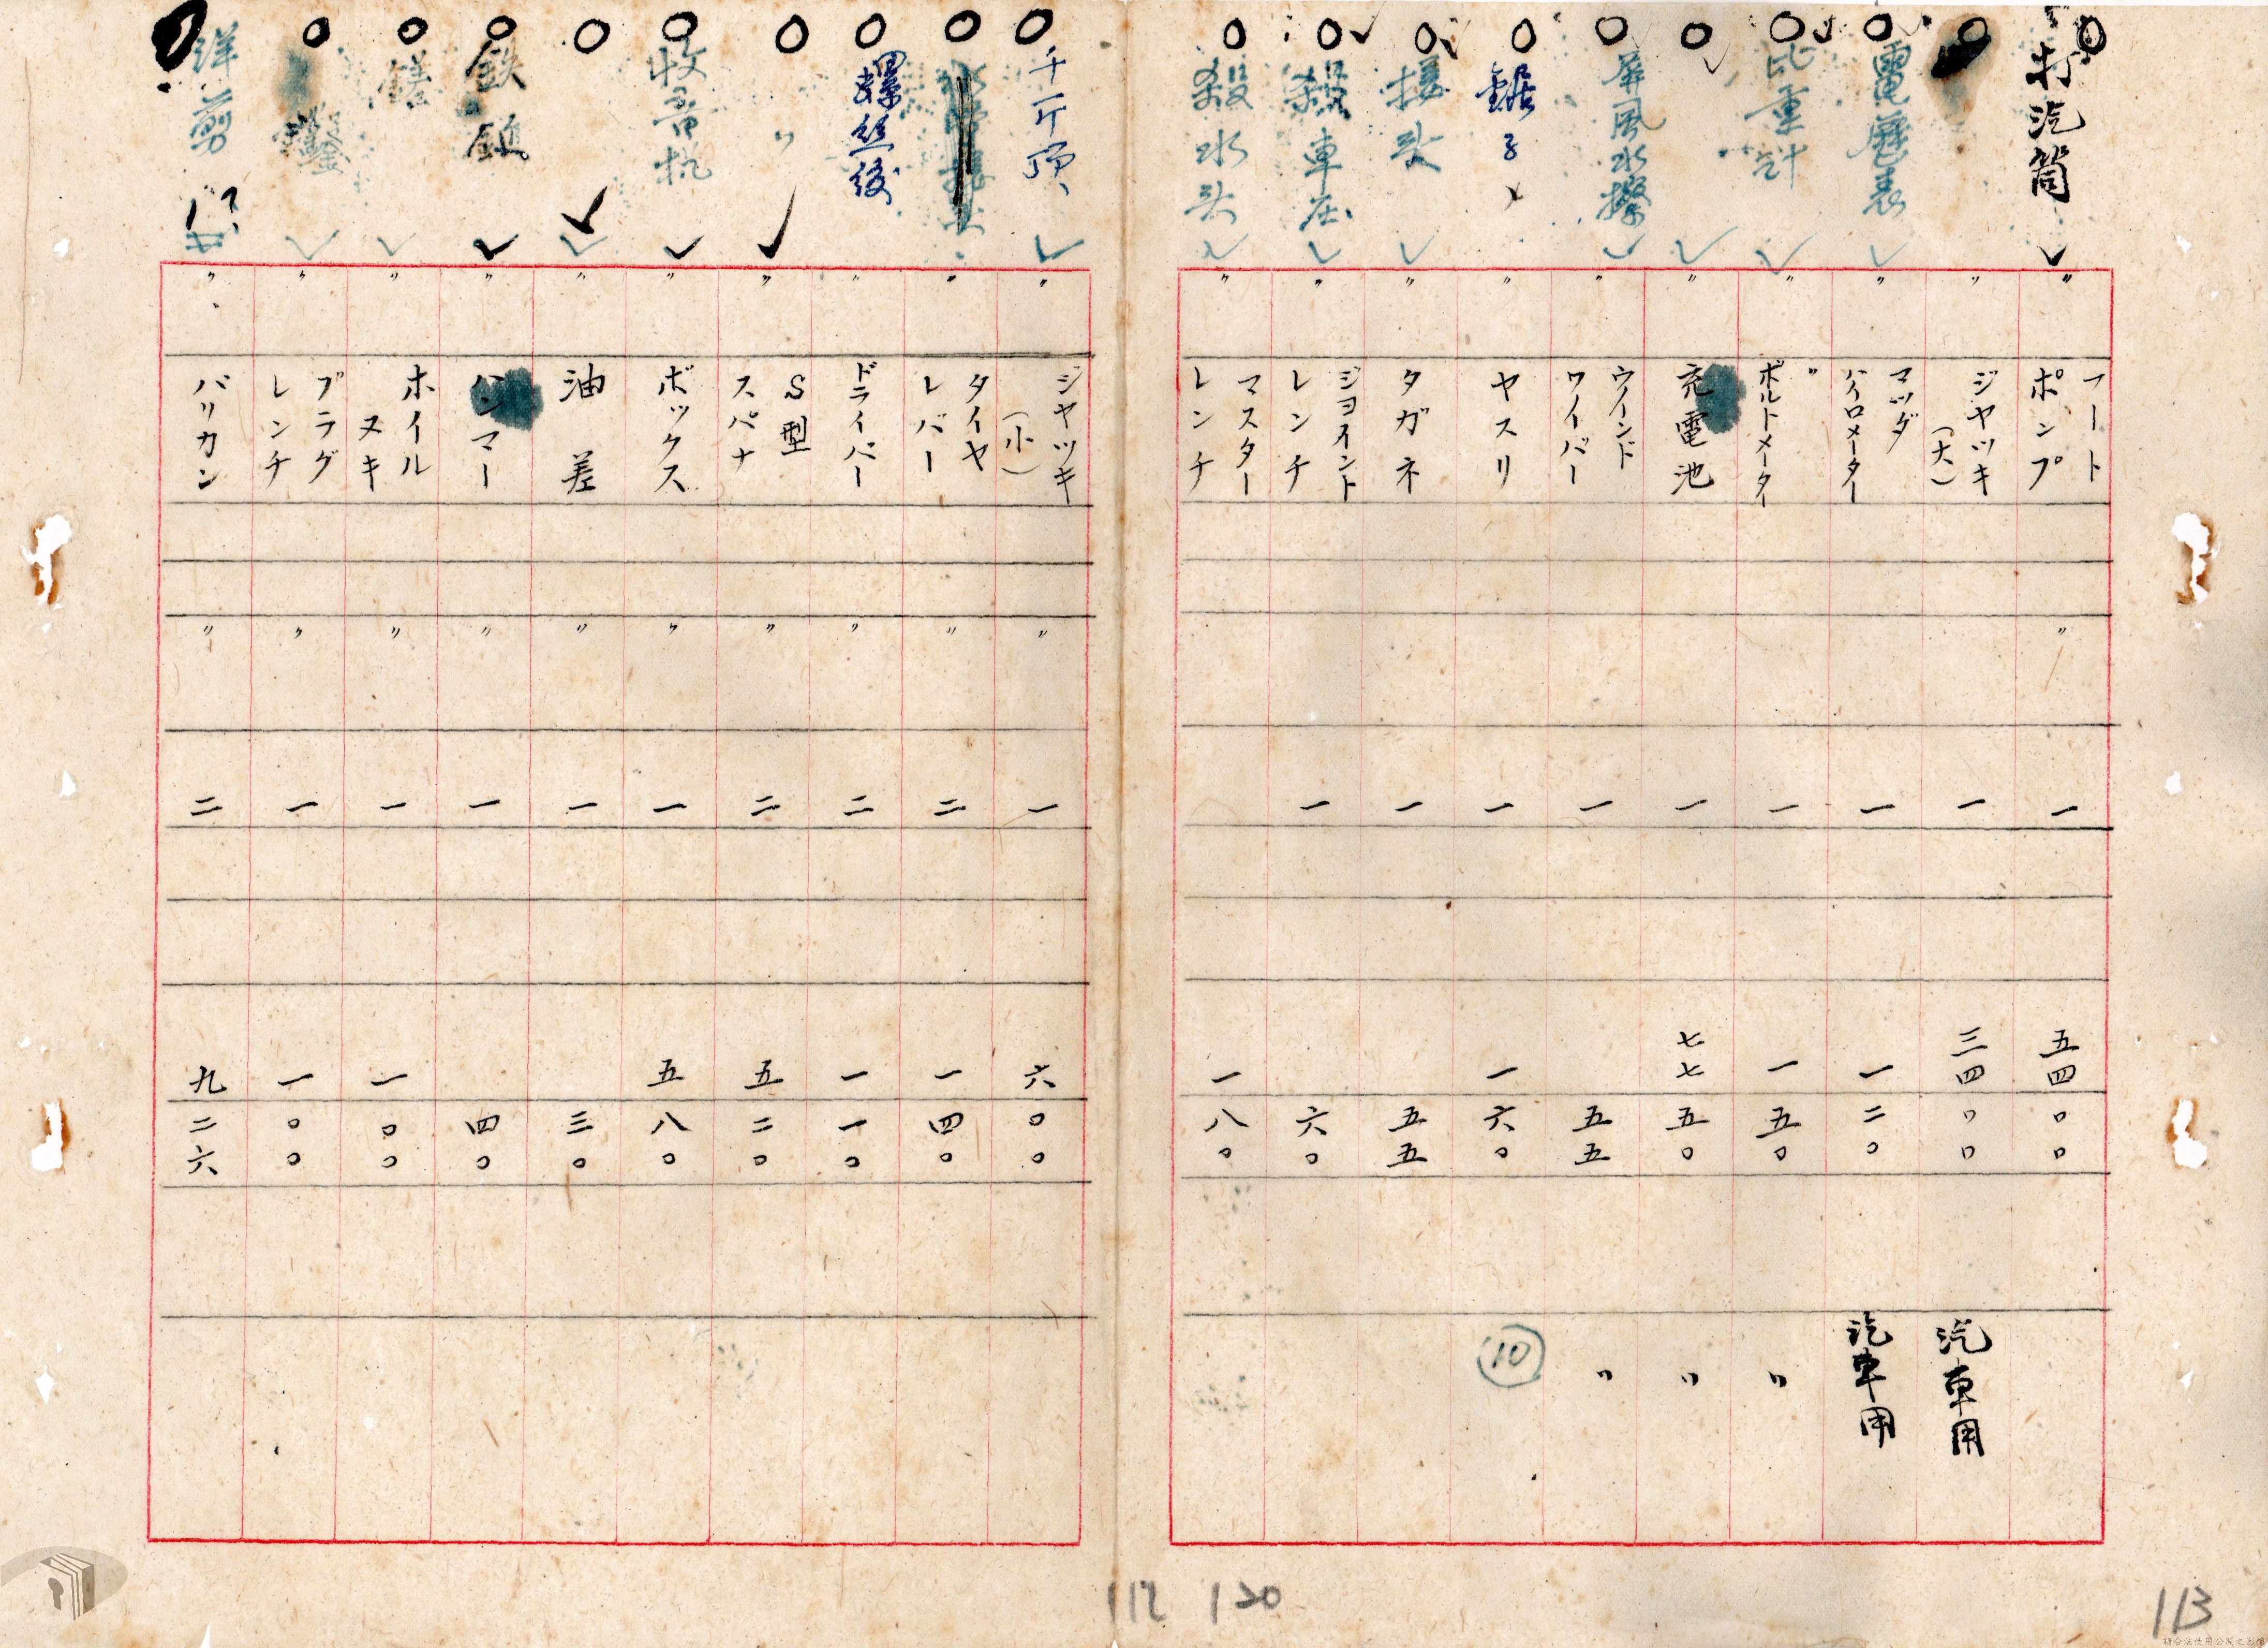 打汽筒
〃
フート
ポンプ
〃
一
五四
〇〇
〃
ジヤツキ
(大)
一
三四
〇〇
汽車用
電壓表
〃
マツダ
ハイロメーター
一
一
二〇
汽車用
比重計
〃
〃
ボルトメーター
一
一
五〇
〃
〃
充電池
一
七七
五〇
〃
屏風水撥
〃
ウインド
ワイパー
一
五五
〃
鋸子
〃
ヤスリ
一
一
六〇
10
接头
〃
タガネ
一
五五
殺車庄
〃
ジヨイント
レンチ
一
六〇
殺水头
〃
マスター
レンチ
一
八〇
千斤頂
〃
ジヤツキ
(小)
〃
一
六
〇〇
〃
タイヤ
レバー
〃
二
一
四〇
螺丝
〃
ドライバー
〃
二
一
一〇
〃
〃
S型
スパナ
〃
二
五
二〇
收音机
〃
ボックス
〃
一
五
八〇
〃
油差
〃
一
三〇
鉄鎚
〃
ハンマー
〃
一
四〇
〃
ホイル
ヌキ
〃
一
一
〇〇
鑿
〃
プラグ
レンチ
〃
一
一
〇〇
洋剪
〃
バリカン
〃
二
九
二六
112 120
113
請合法使用公開之影像